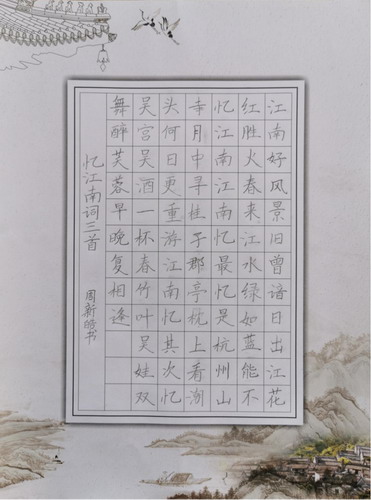 江南好风景旧曾谙日出江花
红胜火春来江水绿如蓝能不
忆江南江南忆最忆是杭州山
寺月中寻桂子郡亭枕上看潮
头何日更重游江南忆其次忆
吴宫吴酒一杯春竹叶吴娃双
舞醉芙蓉早晚复相逢
忆江南词三首
周新书